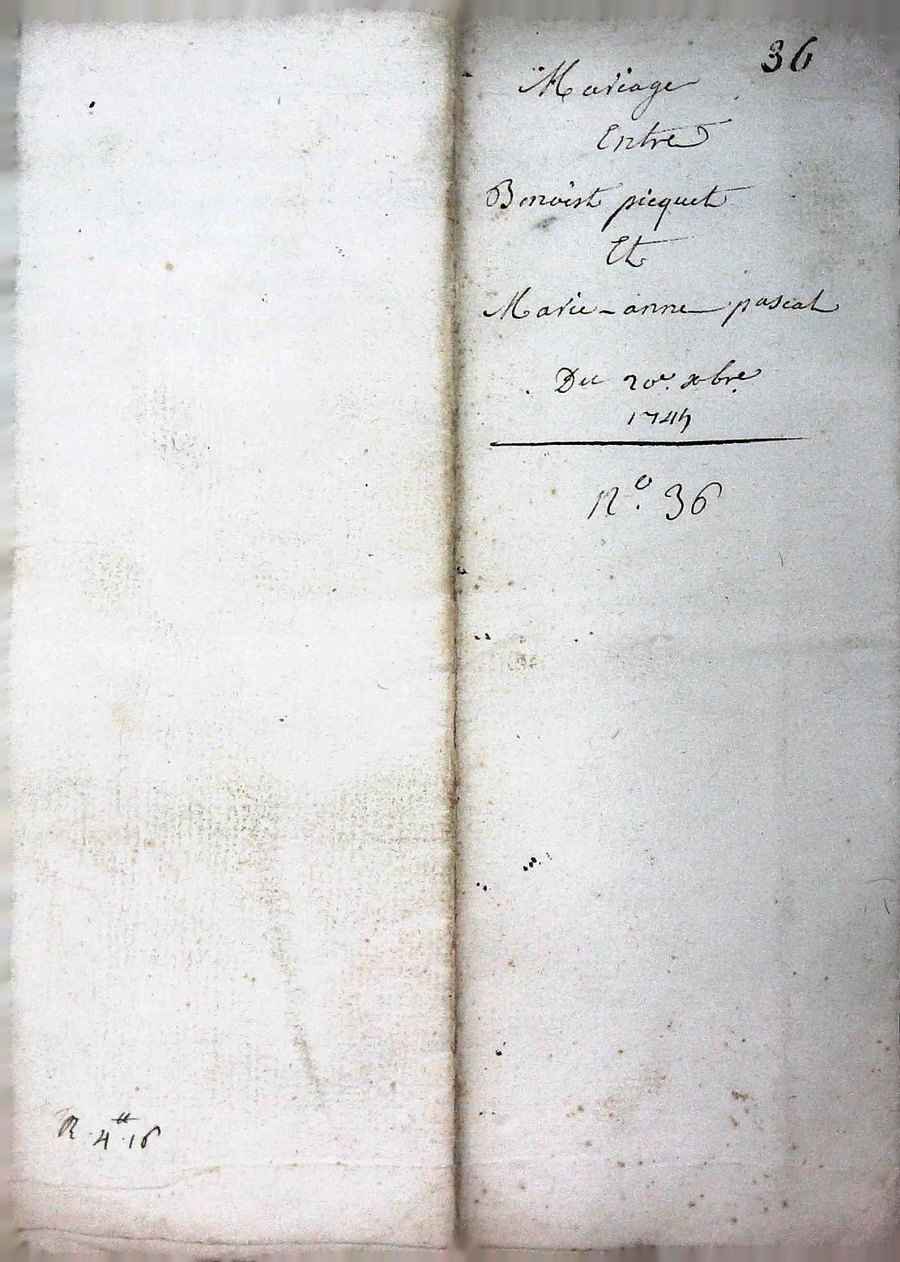 36
Mariage
Entre
Benoist picquet
Et
Marie-anne pascal
Du 20e. xbre.
N°. 36
R. 4 ₶ 16